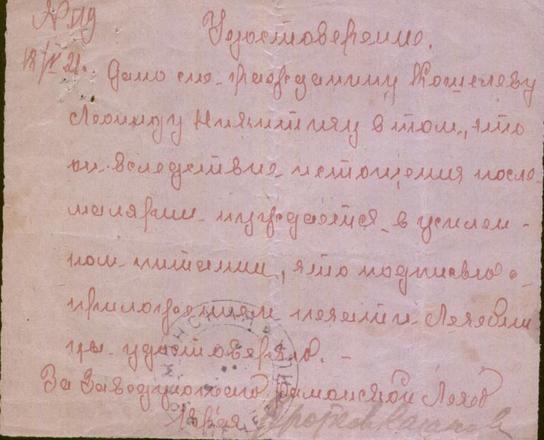 № 119
Удостоверение.
18/IX 21.
Дано сие гражданину Кошелеву
Леониду Никитичу в том, что
он вследствие истощения после
малярии нуждается в усилен-
ном питании, что подписью с
приложением печати Лечебни-
цы удостоверяю. —
За Заведующего Рамонской Лечеб
Врач